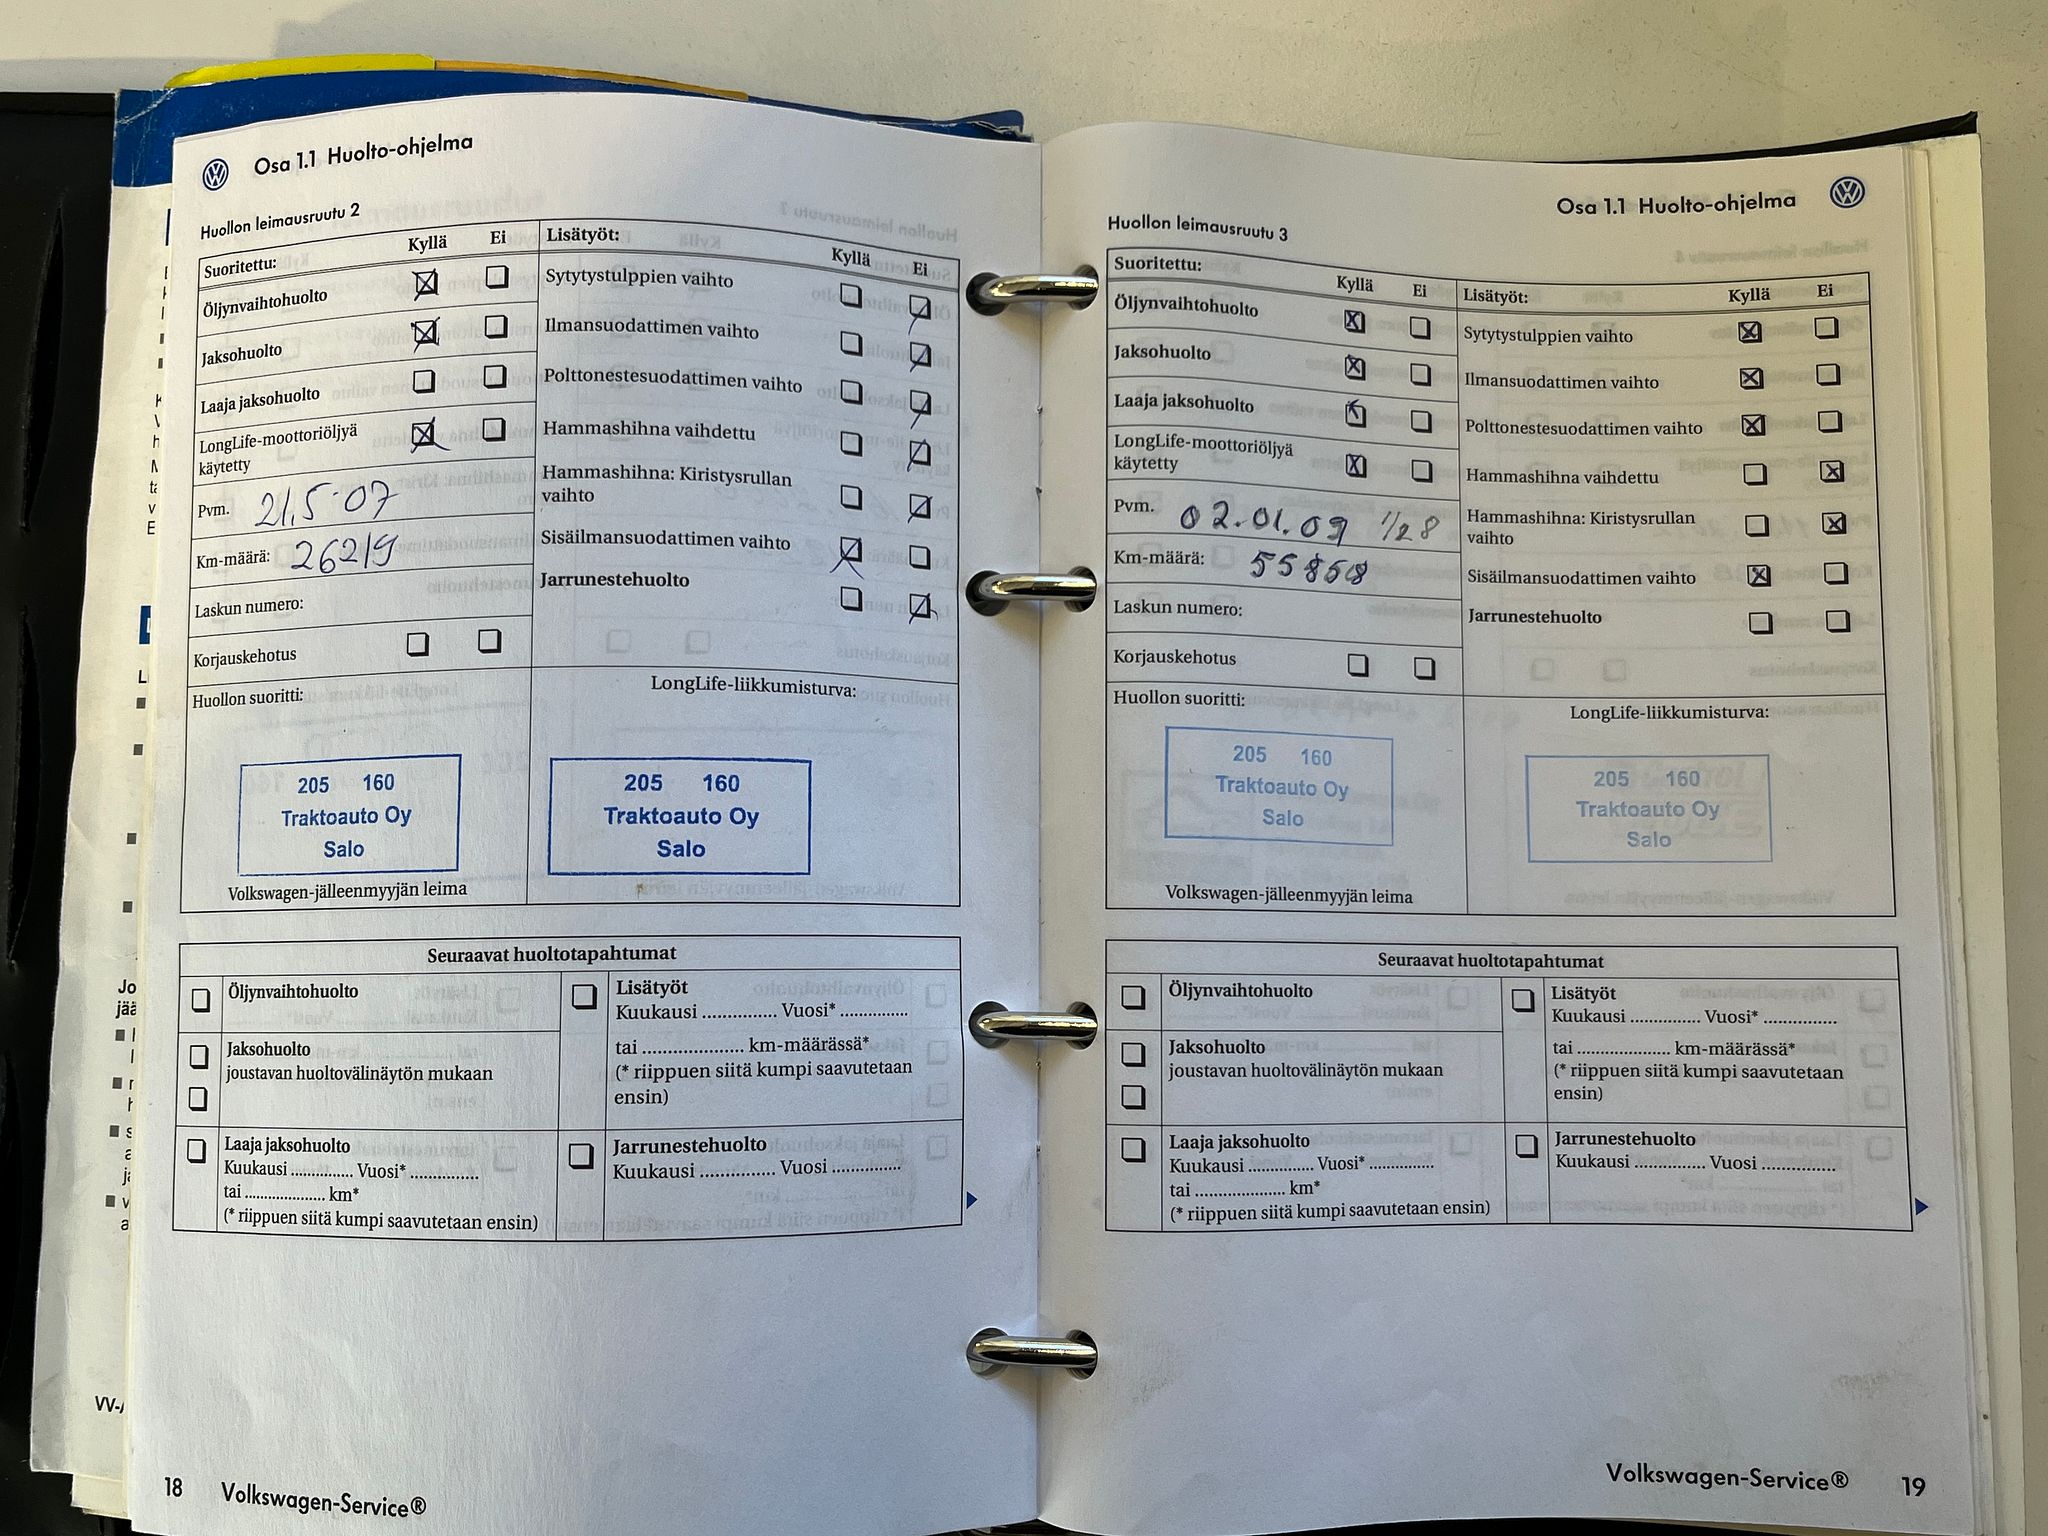 Osa 1.1 Huolto-ohjelma
Huollon leimausruutu 2
Suoritettu: Kyllä Ei
Öljynvaihtohuolto
Jaksohuolto
Laaja jaksohuolto
LongLife-moottoriöljyä
käytetty
Pvm. 21.5.07
Km-määrä: 26219
Laskun numero:
Korjauskehotus
Lisätyöt: Kyllä Ei
Sytytystulppien vaihto
Ilmansuodattimen vaihto
Polttonestesuodattimen vaihto
Hammashihna vaihdettu
Hammashihna: Kiristysrullan
vaihto
Sisäilmansuodattimen vaihto
Jarrunestehuolto
Huollon suoritti:
205 160
Traktoauto Oy
Salo
Volkswagen-jälleenmyyjän leima
LongLife-liikkumisturva:
205 160
Traktoauto Oy
Salo
Seuraavat huoltotapahtumat
Öljynvaihtohuolto
Jaksohuolto
joustavan huoltovälinäytön mukaan
Laaja jaksohuolto
Kuukausi ............ Vuosi* .............
tai .................... km*
(* riippuen siitä kumpi saavutetaan ensin)
Lisätyöt
Kuukausi .............. Vuosi* .............
tai .................... km-määrässä*
(* riippuen siitä kumpi saavutetaan
ensin)
Jarrunestehuolto
Kuukausi .............. Vuosi .............
18 Volkswagen-Service®
Osa 1.1 Huolto-ohjelma
Huollon leimausruutu 3
Suoritettu: Kyllä Ei
Öljynvaihtohuolto
Jaksohuolto
Laaja jaksohuolto
LongLife-moottoriöljyä
käytetty
Pvm. 02.01.09
Km-määrä: 55858
Laskun numero:
Korjauskehotus
Lisätyöt: Kyllä Ei
Sytytystulppien vaihto
Ilmansuodattimen vaihto
Polttonestesuodattimen vaihto
Hammashihna vaihdettu
Hammashihna: Kiristysrullan
vaihto
Sisäilmansuodattimen vaihto
Jarrunestehuolto
Huollon suoritti:
205 160
Traktoauto Oy
Salo
Volkswagen-jälleenmyyjän leima
LongLife-liikkumisturva:
205 160
Traktoauto Oy
Salo
Seuraavat huoltotapahtumat
Öljynvaihtohuolto
Jaksohuolto
joustavan huoltovälinäytön mukaan
Laaja jaksohuolto
Kuukausi ............ Vuosi* .............
tai .................... km*
(* riippuen siitä kumpi saavutetaan ensin)
Lisätyöt
Kuukausi .............. Vuosi* .............
tai .................... km-määrässä*
(* riippuen siitä kumpi saavutetaan
ensin)
Jarrunestehuolto
Kuukausi .............. Vuosi .............
Volkswagen-Service® 19